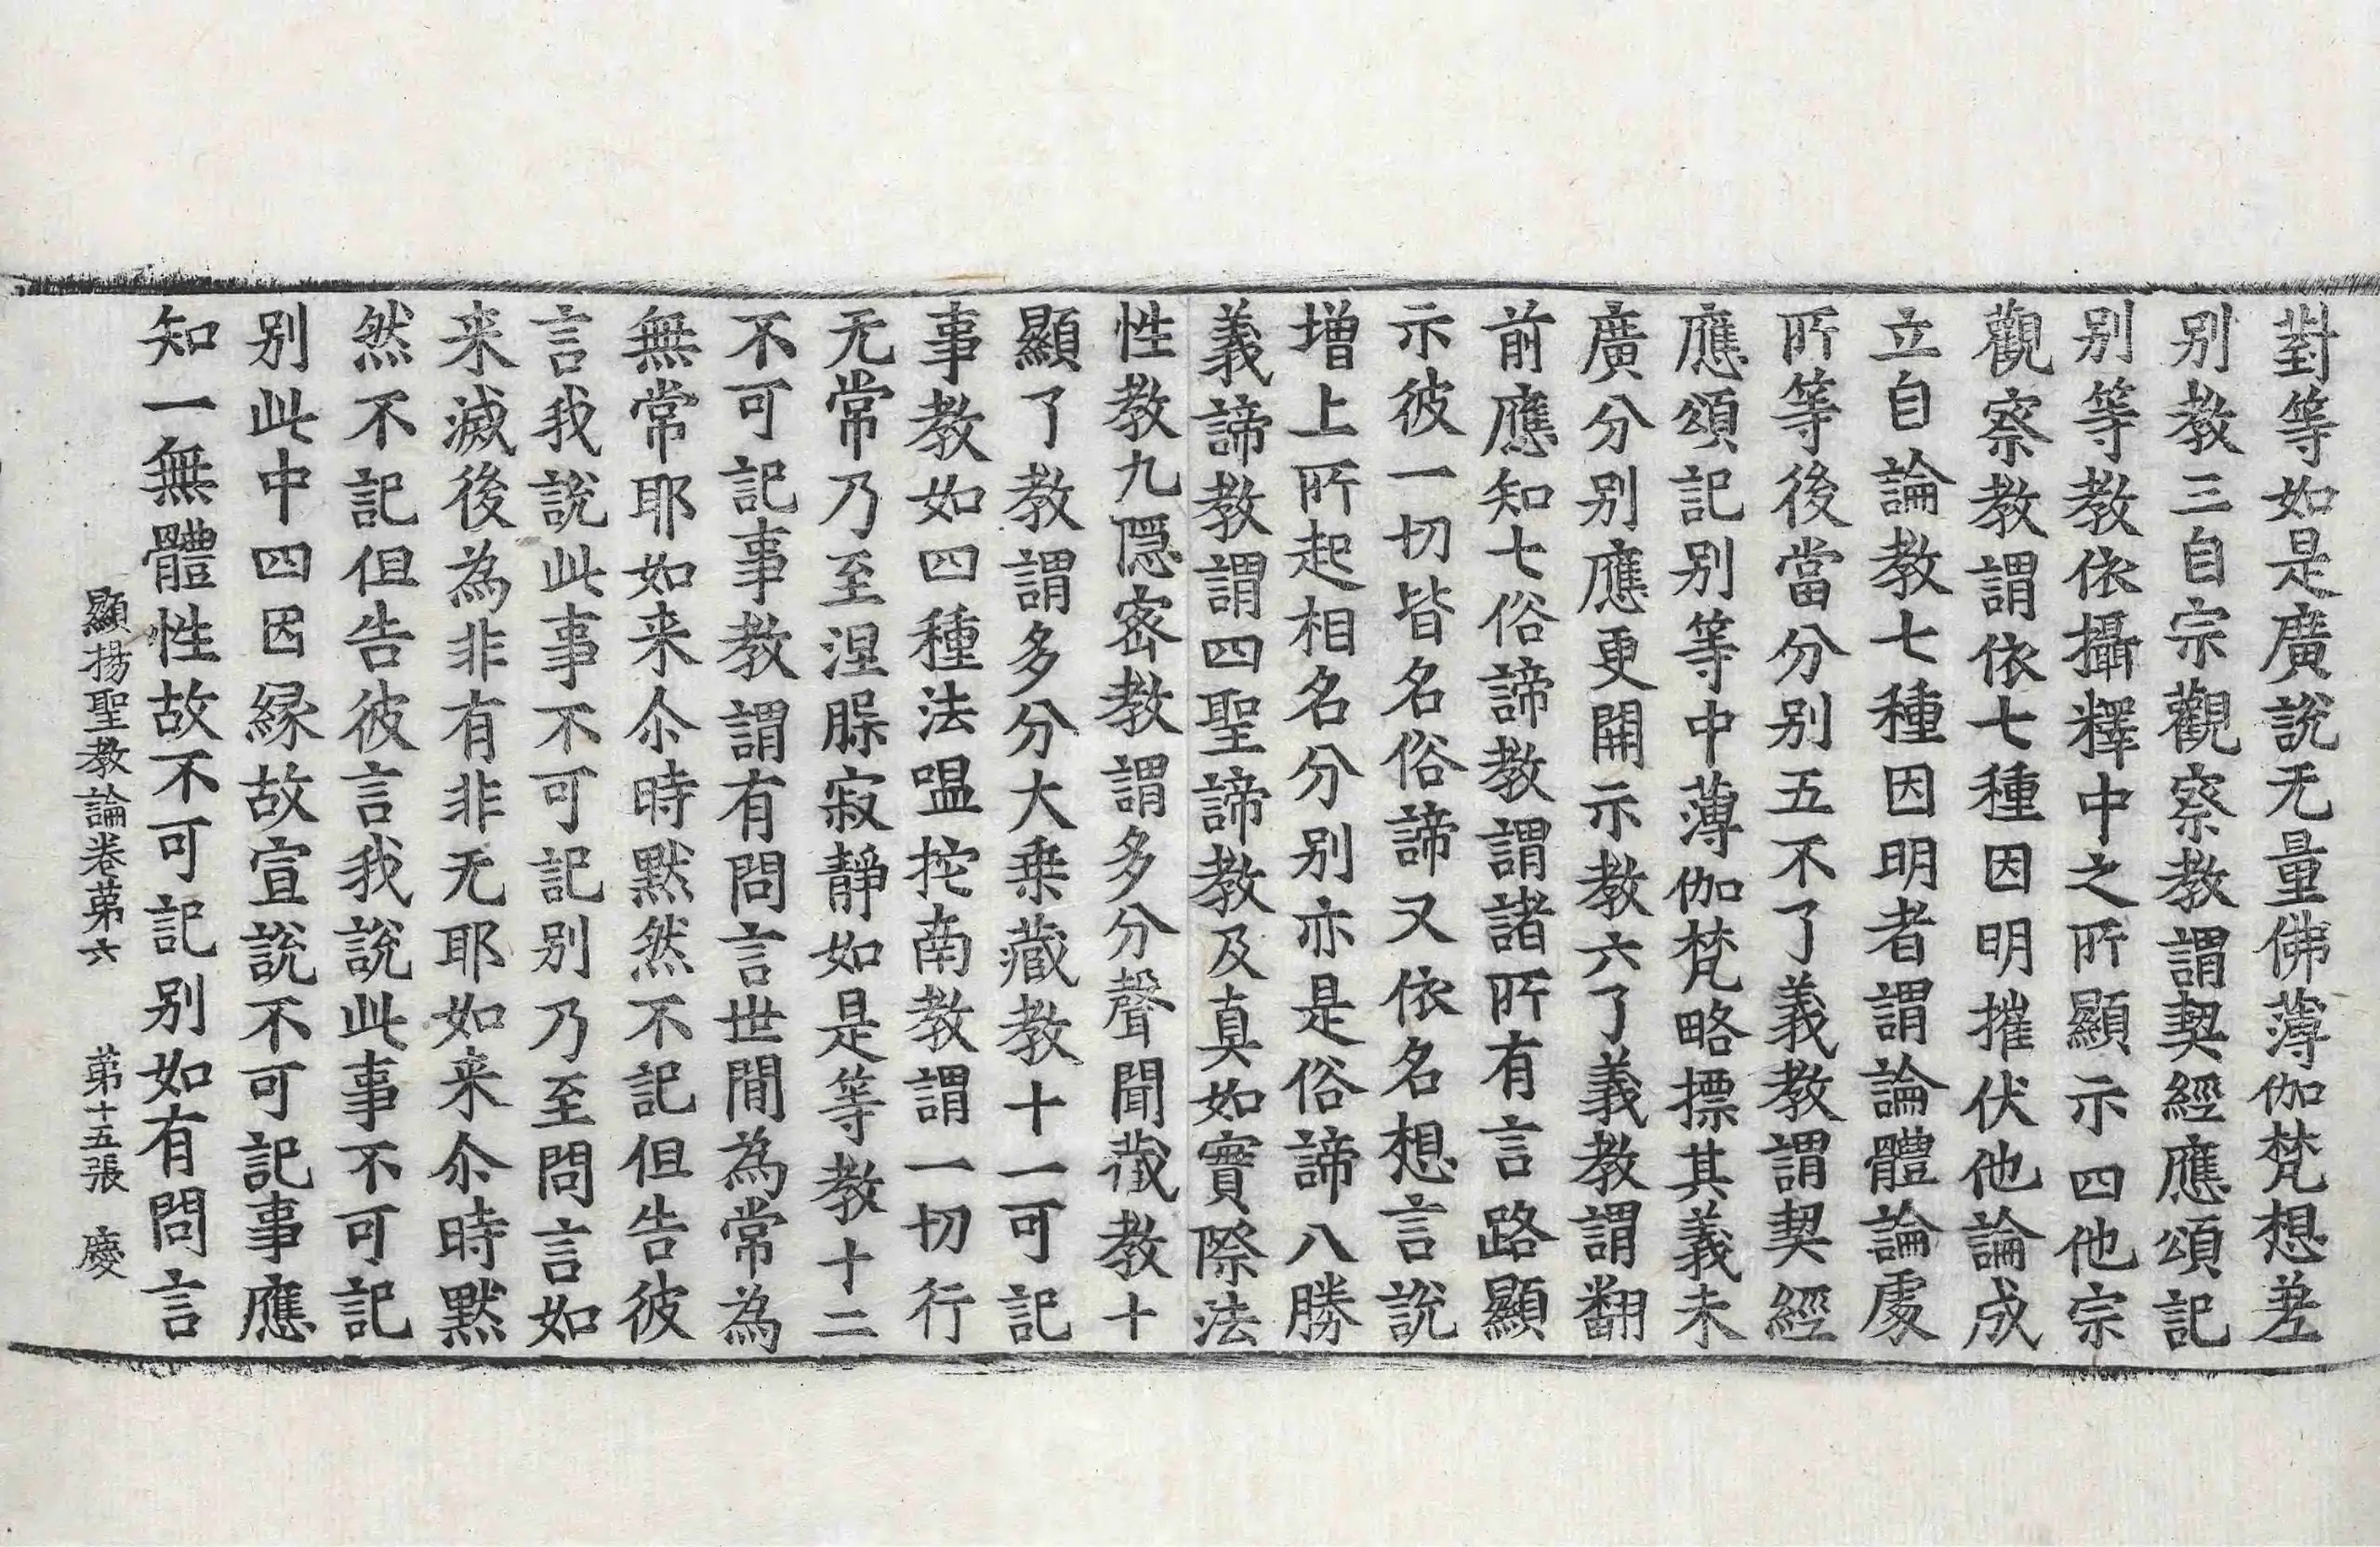 對等如是廣說无量佛薄伽梵想差
别教三自宗觀察教謂契經應頌記
别等教依攝釋中之所顯示四他宗
觀察教謂依七種因明摧伏他論成
立自論教七種因明者謂論體論處
所等後當分别五不了義教謂契經
應頌記别等中薄伽梵略摽其義未
廣分别應更開示教六了義教謂翻
前應知七俗諦教謂諸所有言路顯
示彼一切皆名俗諦又依名想言說
增上所起相名分别亦是俗諦八勝
義諦教謂四聖諦教及真如實際法
性教九隱密教謂多分聲聞藏教十
顯了教謂多分大乗藏教十一可記
事教如四種法嗢拕南教謂一切行
无常乃至涅槃寂靜如是等教十二
不可記事教謂有問言世間為常為
無常耶如来尒時默然不記但告彼
言我說此事不可記别乃至問言如
来滅後為非有非无耶如来尒時默
然不記但告彼言我說此事不可記
别此中四因緣故宣說不可記事應
知一無體性故不可記别如有問言
顯揚聖教論卷第六　第十五張　慶